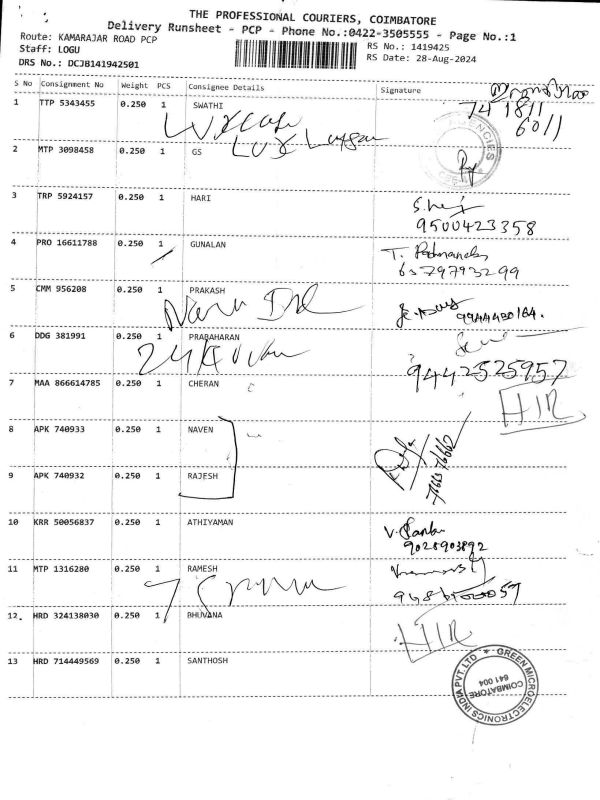 THE PROFESSIONAL COURIERS, COIMBATORE
Delivery Runsheet - PCP - Phone No.:0422-3505555 - Page No.:1
Route: KAMARAJAR ROAD PCP
RS No.: 1419425
Staff: LOGU
RS Date: 28-Aug-2024
DRS No.: DCJB141942501
S No Consignment No Weight PCS Consignee Details Signature
1 TTP 5343455 0.250 1 SWATHI
74 1811
6011
2 MTP 3098458 0.250 1 GS
3 TRP 5924157 0.250 1 HARI
9500423358
4 PRO 16611788 0.250 1 GUNALAN
T.
6379793299
5 CMM 956208 0.250 1 PRAKASH
9944430164.
6 DDG 381991 0.250 1 PRABAHARAN
9442525957
7 MAA 866614785 0.250 1 CHERAN
HIR
8 APK 740933 0.250 1 NAVEN
9 APK 740932 0.250 1 RAJESH
10 KRR 50056837 0.250 1 ATHIYAMAN
9028903892
11 MTP 1316280 0.250 1 RAMESH
12. HRD 324138030 0.250 1 BHUVANA
HIR
13 HRD 714449569 0.250 1 SANTHOSH
GREEN MICROELECTRONICS INDIA PVT. LTD
COIMBATORE
641 004